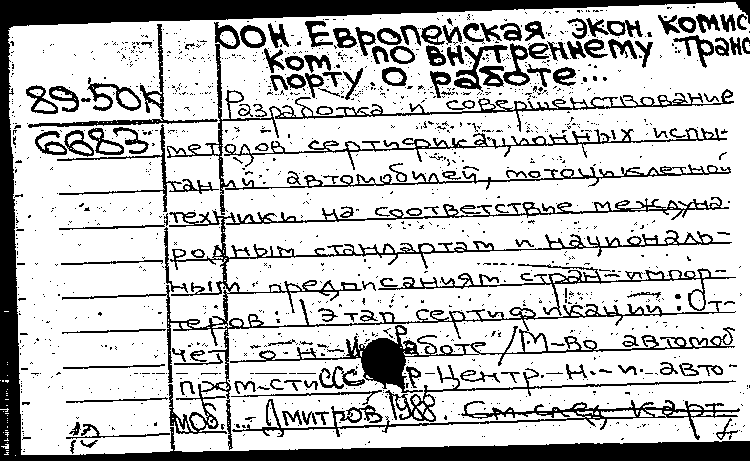 ООН. Европейская экон. комис
Ком. по внутреннему транс
порту. О работе...
89-50К Разработка и совершенствование
6683 методов сертификационных испы-
таний автомобилей, мотоциклетной
техники на соответствие междуна-
родным стандартам и националь-
ным предписаниям стран-импор-
теров: 1 этап сертификации: От-
чет о н.-и. работе / М-во автомоб
пром-сти СССР, Центр. н.-и. авто-
моб. ... - Дмитров, 1988. См. след. карт